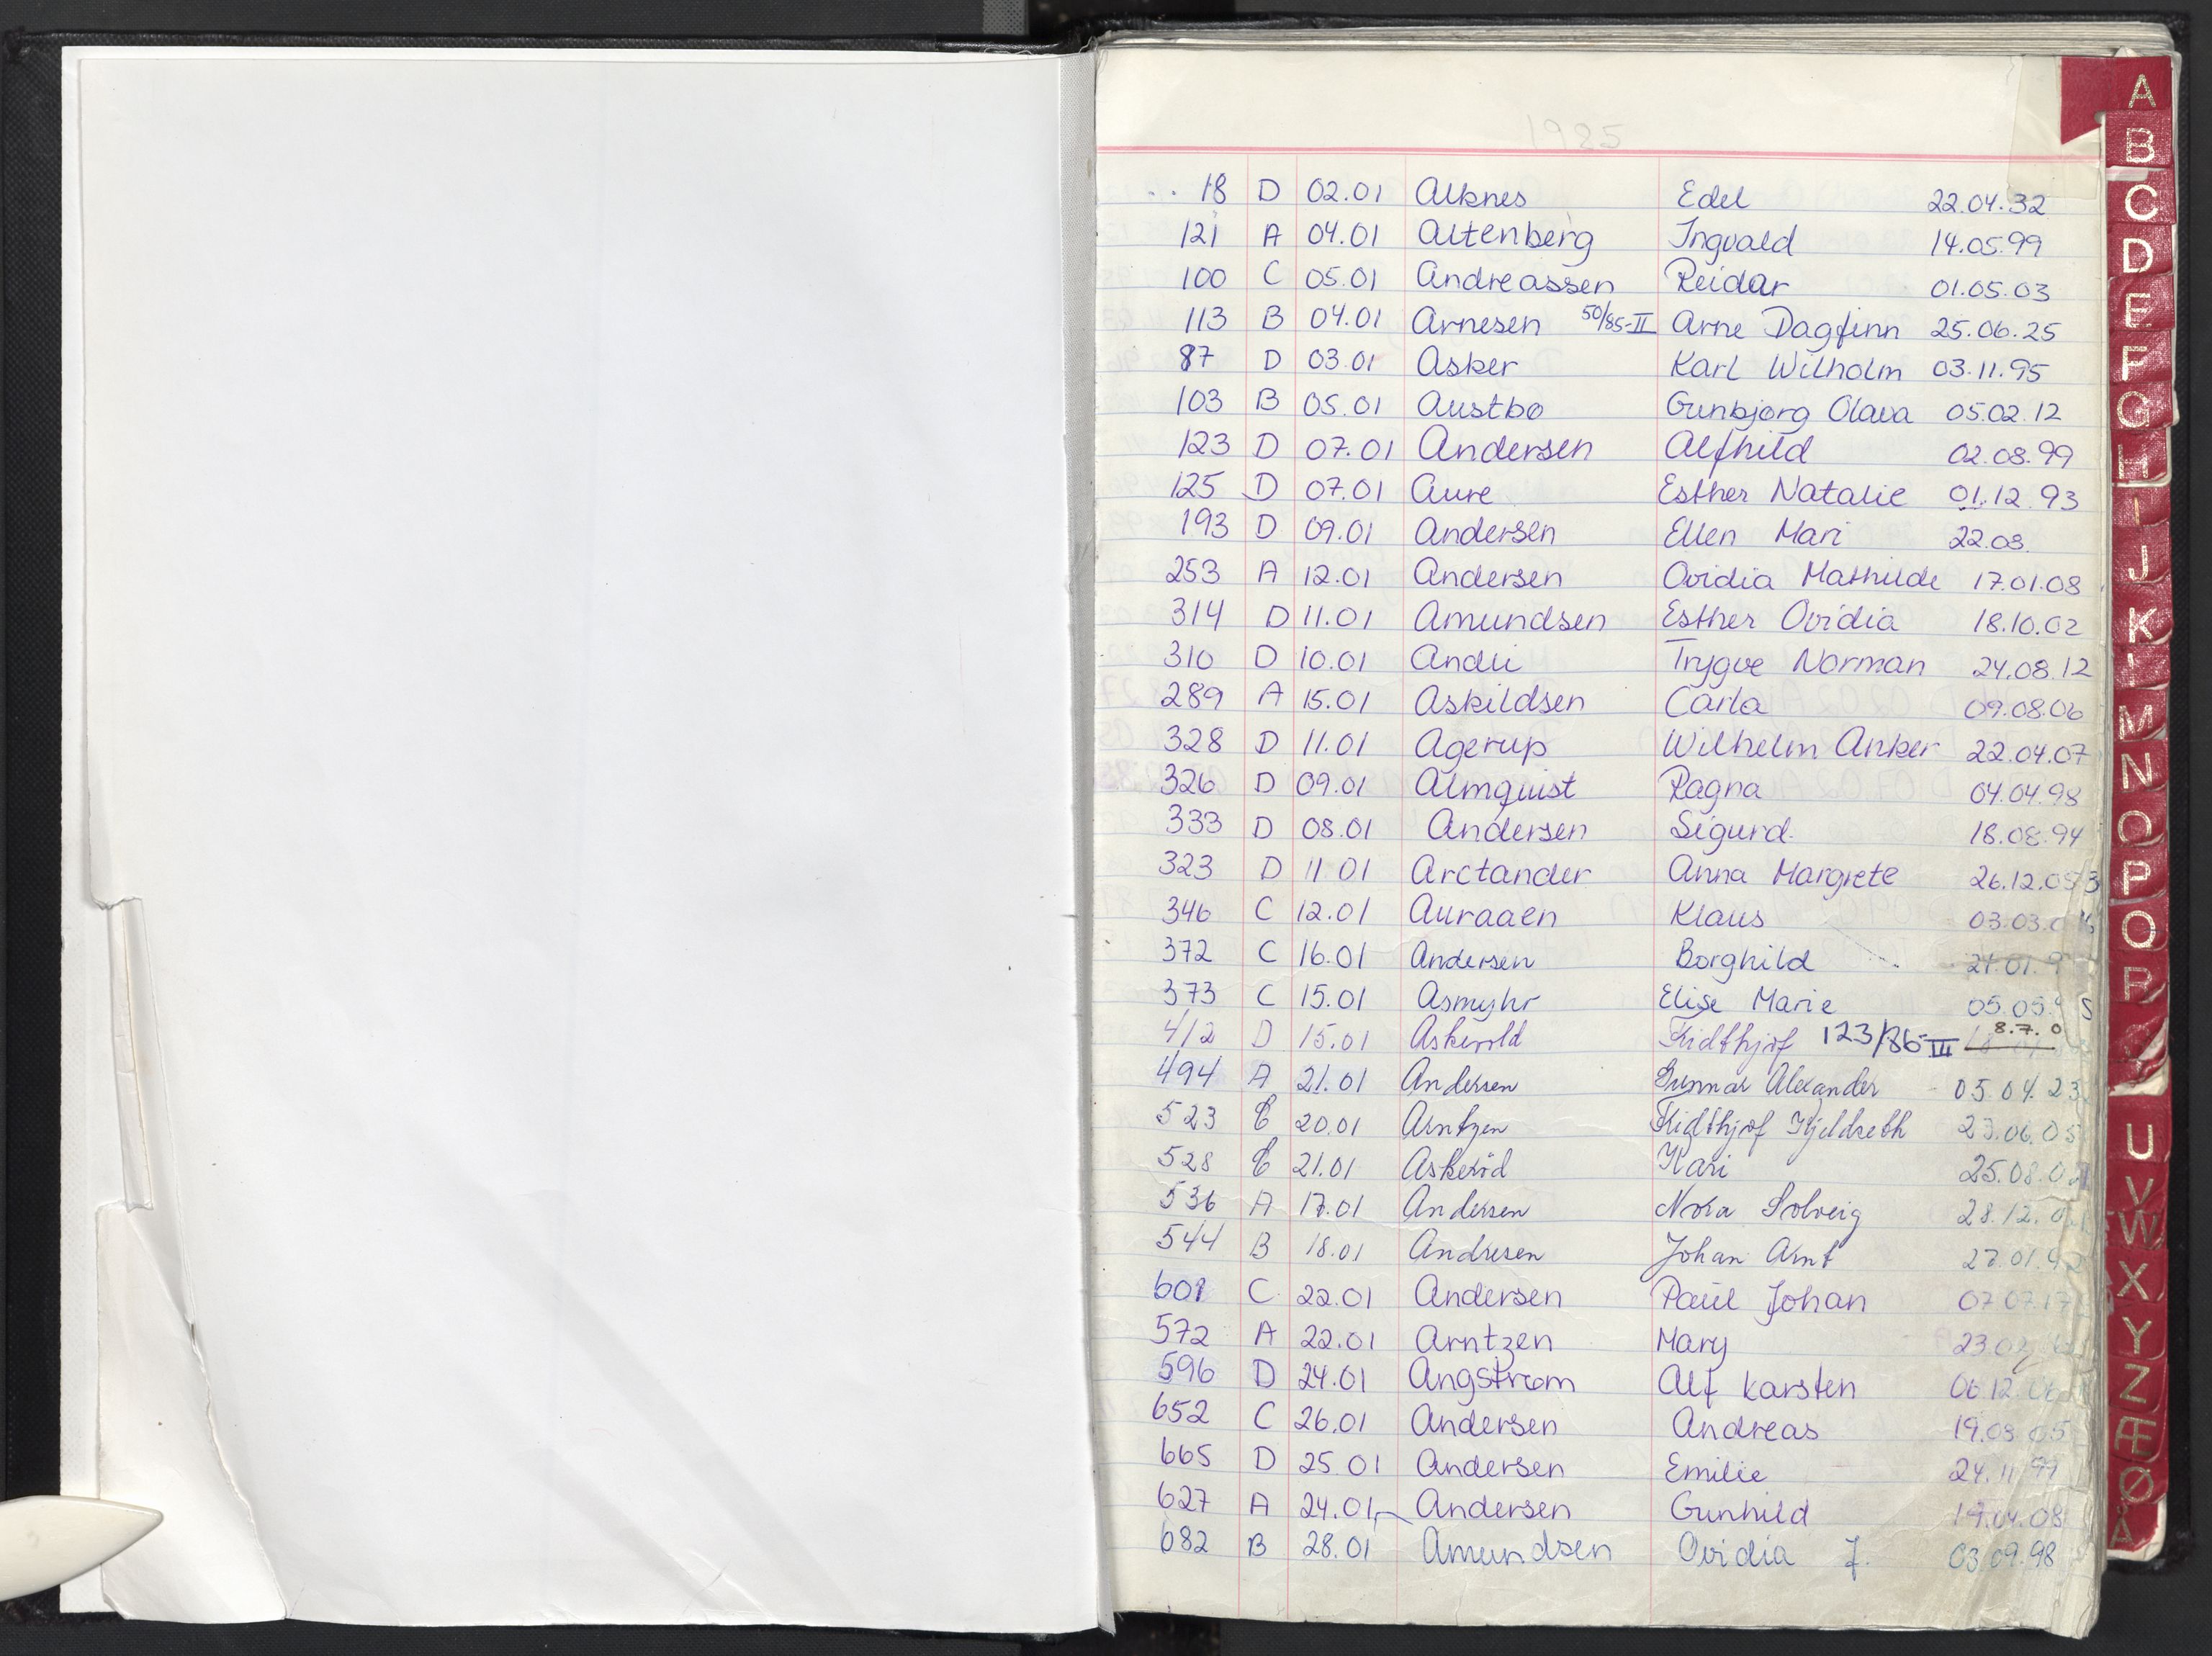 1985
18 D 02.01 Alknes Edel 22.04.32
121 A 04.01 Altenberg Ingvald 14.05.99
100 C 05.01 Andreassen Reidar 01.05.03
113 B 04.01 Arnesen 50/85-II Arne Dagfinn 25.06.25
87 D 03.01 Asker Karl Wilholm 03.11.95
103 B 05.01 Austbø Gunbjørg Olava 05.02.12
123 D 07.01 Andersen Alfhild 02.08.99
125 D 07.01 Aure Esther Natalie 01.12.93
193 D 09.01 Andersen Ellen Mari 22.08.
253 A 12.01 Andersen Ovidia Mathilde 17.01.08
314 D 11.01 Amundsen Esther Ovidia 18.10.02
310 D 10.01 Andli Trygve Norman 24.08.12
289 A 15.01 Askildsen Carla 09.08.06
328 D 11.01 Agerup Wilhelm Anker 22.04.07
326 D 09.01 Almquist Ragna 04.04.98
333 D 08.01 Andersen Sigurd. 18.08.94
323 D 11 01 Arctander Anna Margrete 26.12.05
346 C 12.01 Auraaen Klaus 03.03.0
372 C 16.01 Andersen Borghild 21.01.9
373 C 15.01 Asmyhr Elise Marie 05.05.
412 D 15.01 Fridthjof 123/86-III 8.7.0
494 A 21.01 Andersen Gunnar Alexander 05.04.23
523 C 20.01 Arntzen Fridthjof Kjeldseth 23.06.05
528 C 21.01 Askeröd Kari 25.08.0
536 A 17.01 Andersen Nora Solveig 28.12.0
544 B 18.01 Andresen Johan Arnt 27.01.92
601 C 22.01 Andersen Paul Johan 07.07.17
572 A 22.01 Arntzen Mary 23.0
596 D 24.01 Angstrøm Alf Karsten 06.12.06
652 C 26.01 Andersen Andreas 19.03.05
665 D 25 01 Andersen Emilie 24.11.99
627 A 24.01 Andersen Gunhild 19.04.08
682 B 28.01 Amundsen Ovidia J. 03.09.98
A
B
C
D
E
F
G
H
I
J
K
L
M
N
O
P
Q
R
U
V
W
X
Y
Z
Æ
Ø
Å